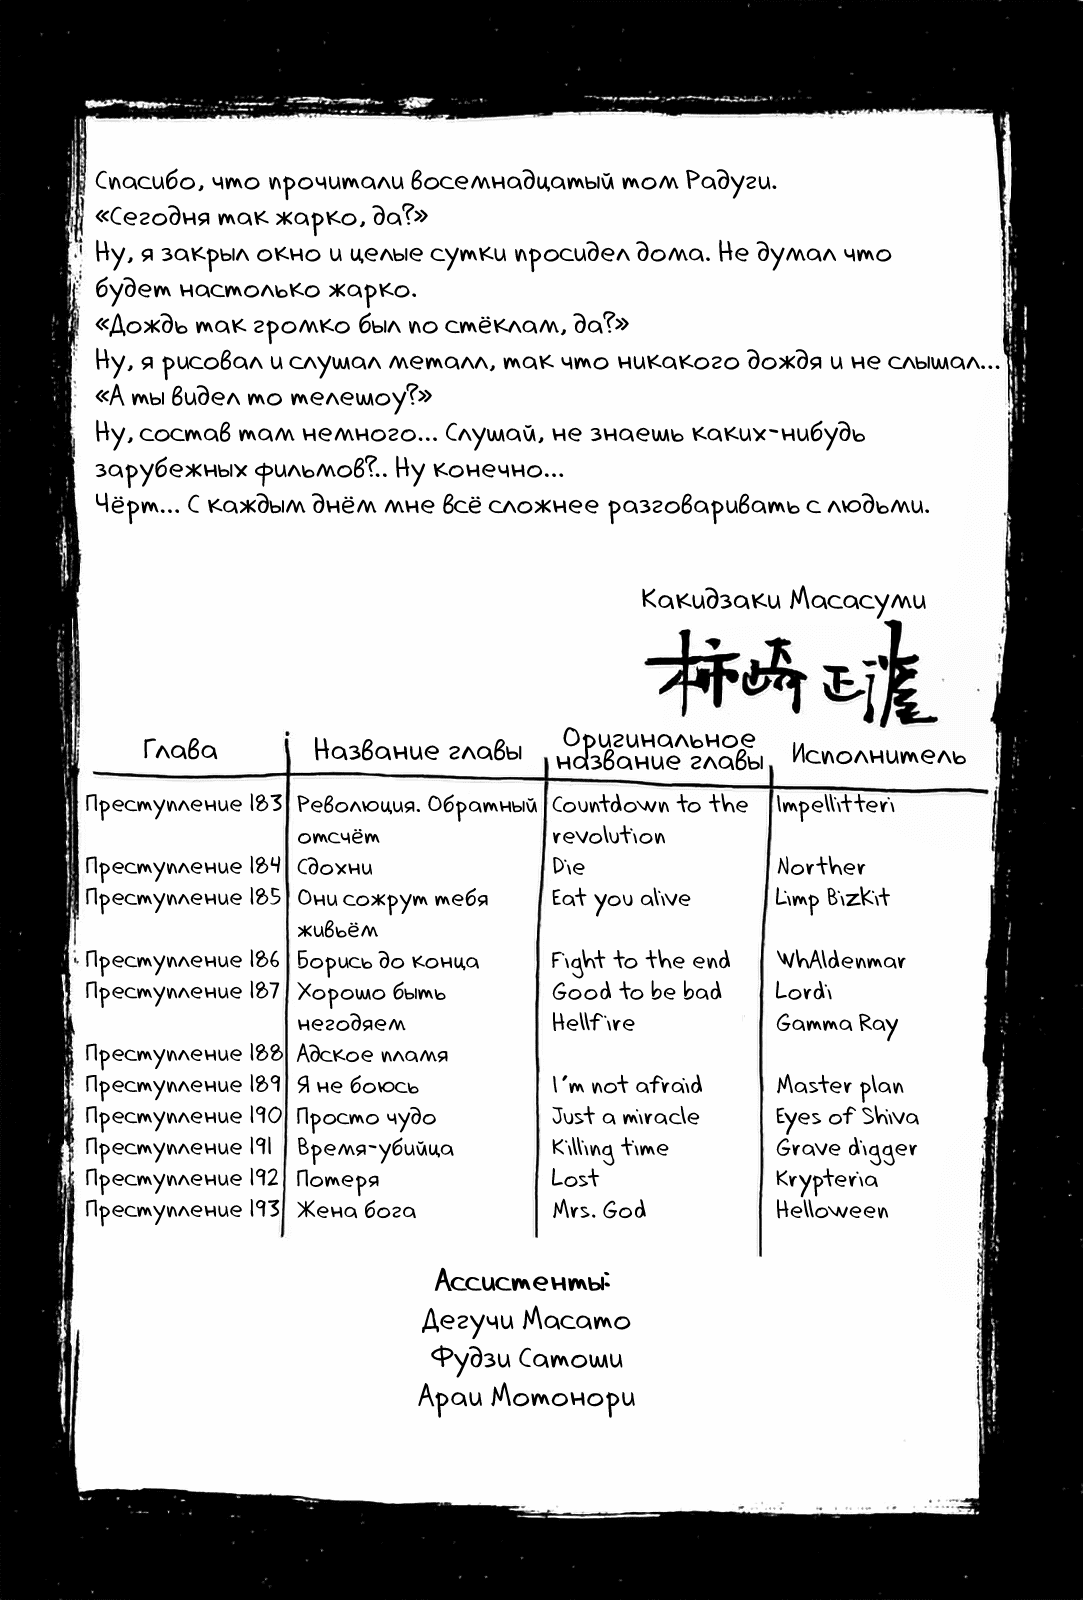 Спасибо, что прочитали восемнадцатый том Радуги.
«Сегодня так жарко, да?»
Ну, я закрыл окно и целые сутки просидел дома. Не думал что
будет настолько жарко.
«Дождь так громко был по стёклам, да?»
Ну, я рисовал и слушал металл, так что никакого дождя и не слышал...
«А ты видел то телешоу?»
Ну, состав там немного... Слушай, не знаешь каких-нибудь
зарубежных фильмов?.. Ну конечно...
Чёрт... С каждым днём мне всё сложнее разговаривать с людьми.
Какидзаки Масасуми
柿崎正澄
Глава Название главы Оригинальное название главы Исполнитель
Преступление 183 Революция. Обратный Countdown to the Impellitteri
отсчёт revolution
Преступление 184 Сдохни Die Norther
Преступление 185 Они сожрут тебя Eat you alive Limp Bizkit
живьём
Преступление 186 Борись до конца Fight to the end WhAldenmar
Преступление 187 Хорошо быть Good to be bad Lordi
негодяем Hellfire Gamma Ray
Преступление 188 Адское пламя
Преступление 189 Я не боюсь I'm not afraid Master plan
Преступление 190 Просто чудо Just a miracle Eyes of Shiva
Преступление 191 Время-убийца Killing time Grave digger
Преступление 192 Потеря Lost Krypteria
Преступление 193 Жена бога Mrs. God Helloween
Ассистенты:
Дегучи Масато
Фудзи Сатоши
Араи Мотонори